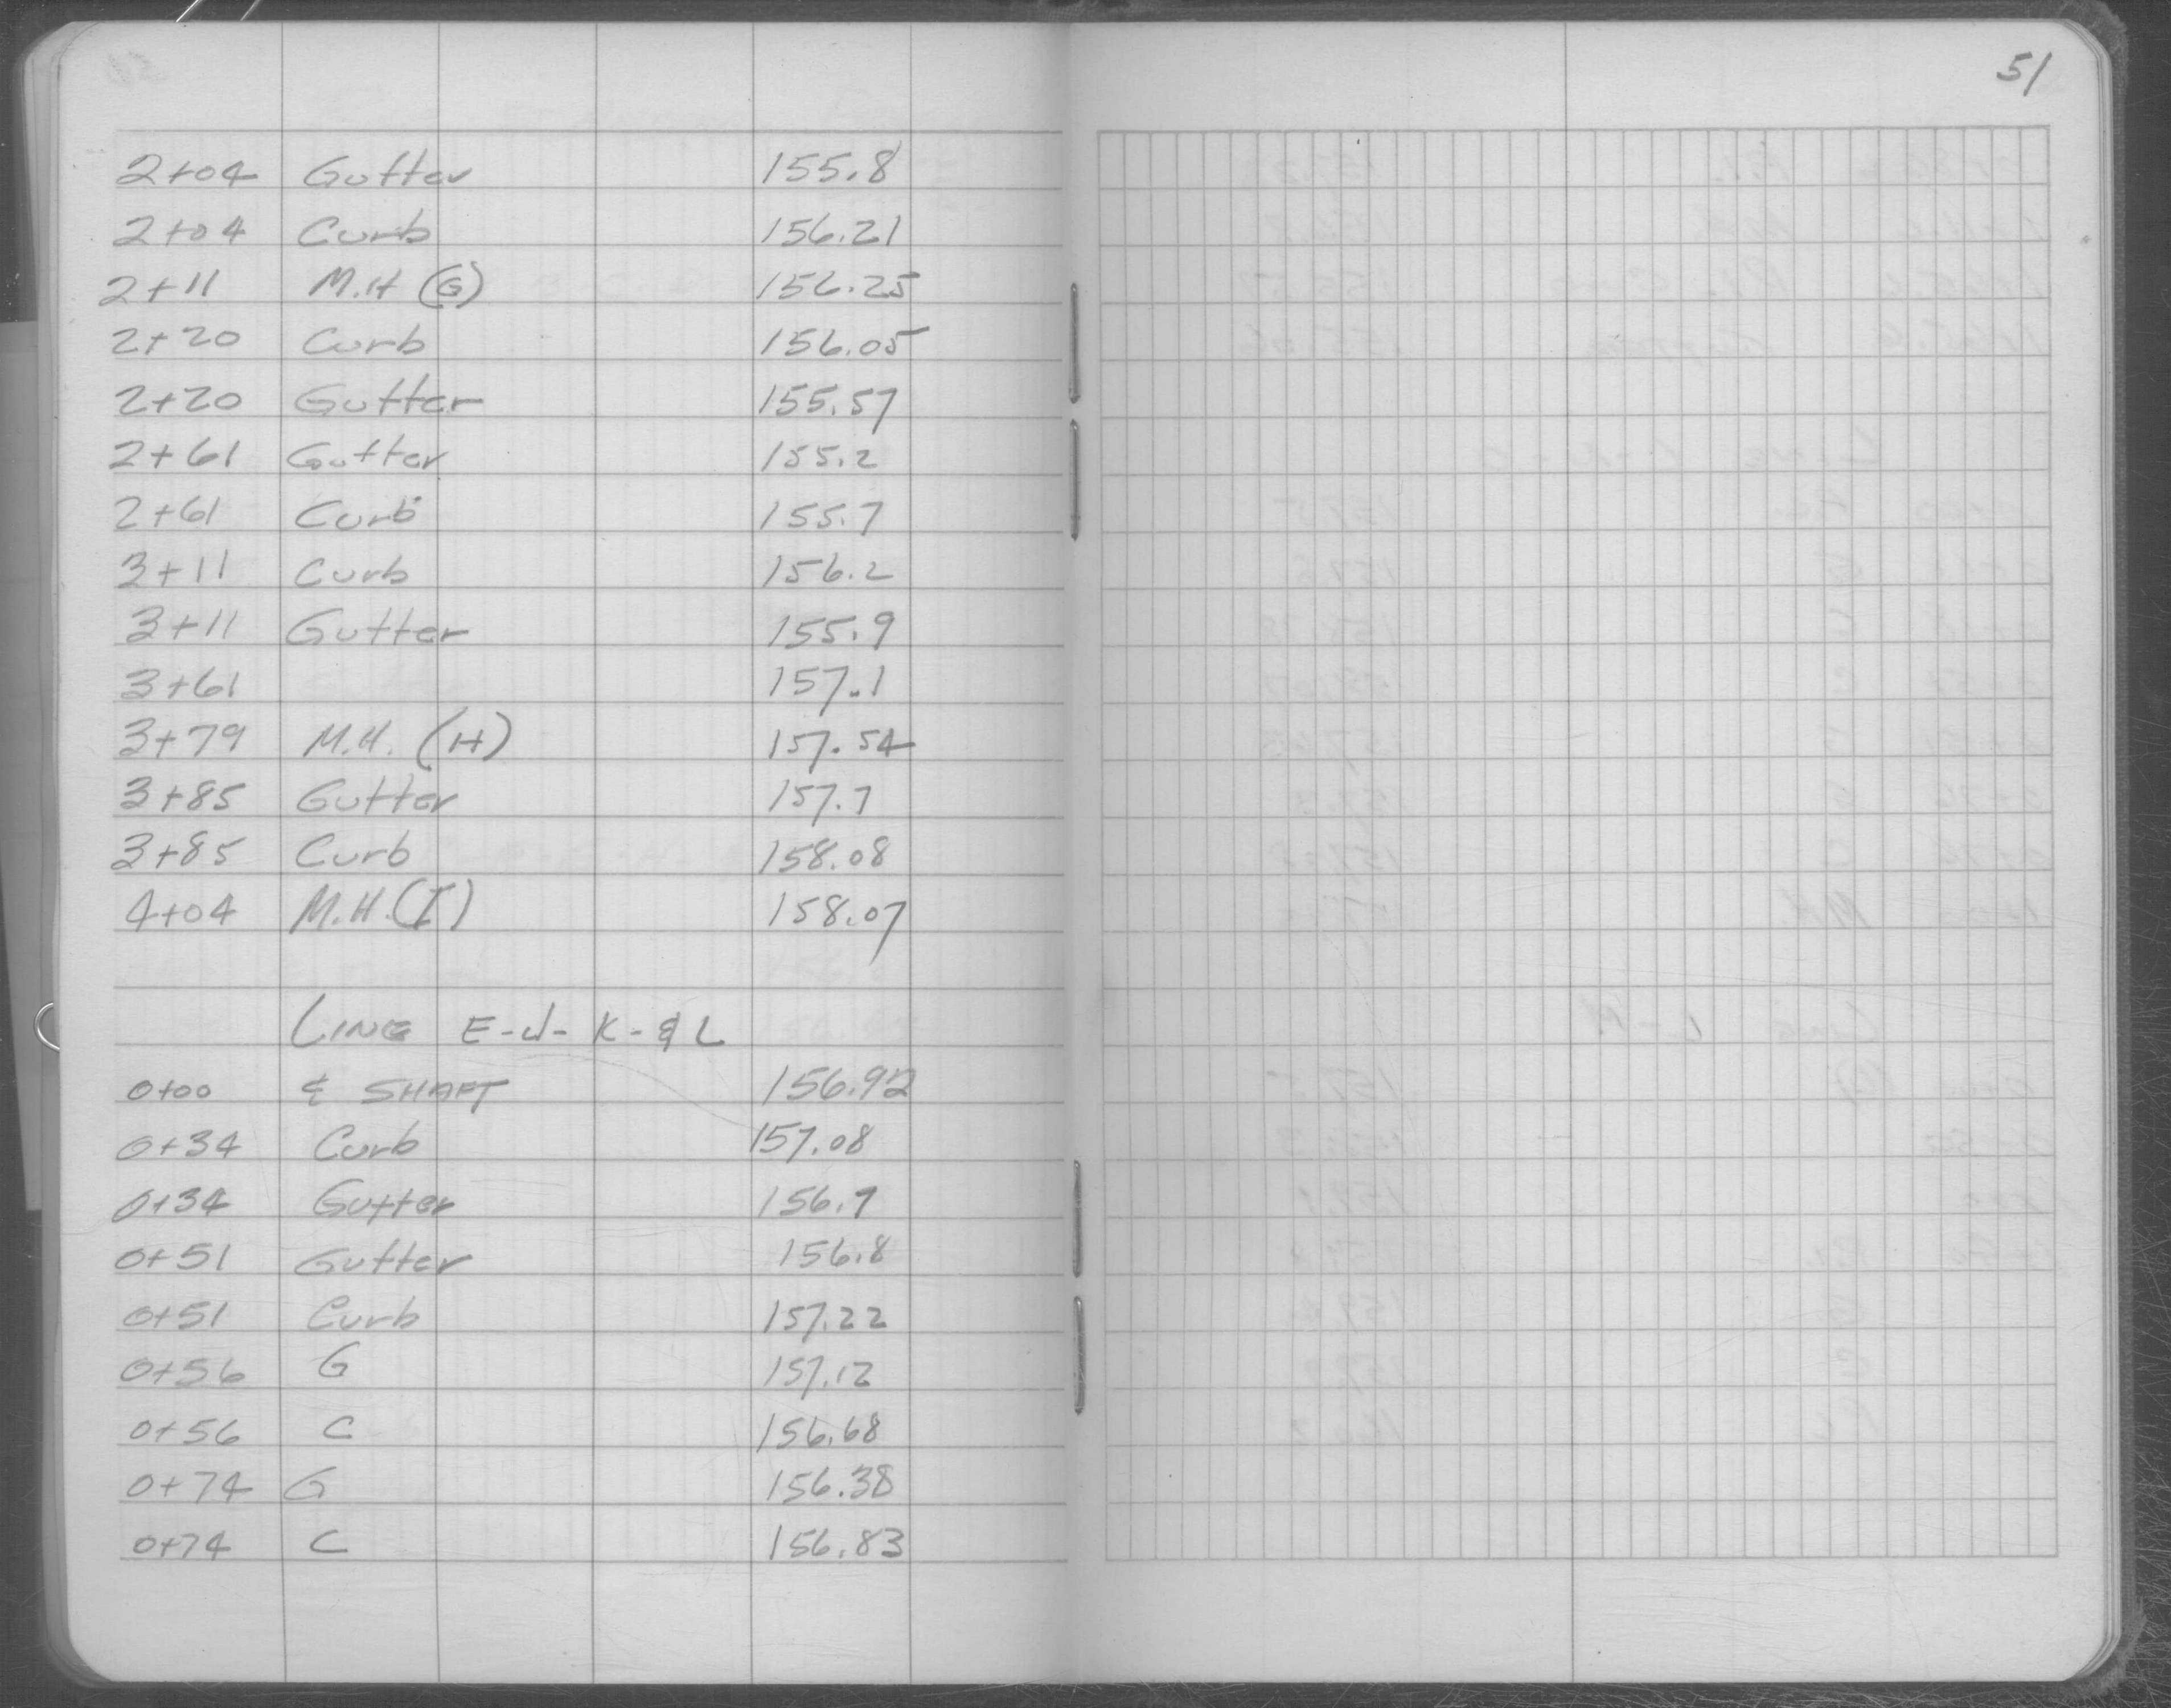 51
2+04 Gutter 155.8
2+04 Curb 156.21
2+11 M.H (G) 156.25
2+20 Curb 156.05
2+20 Gutter 155.57
2+61 Gutter 155.2
2+61 Curb 155.7
3+11 Curb 156.2
3+11 Gutter 155.9
3+61 157.1
3+79 M.H. (H) 157.54
3+85 Gutter 157.7
3+85 Curb 158.08
4+04 M.H. (I) 158.07
LINE E-J-K-&L
0+00 ¢ SHAFT 156.92
0+34 Curb 157.08
0+34 Gutter 156.7
0+51 Gutter 156.8
0+51 Curb 157.22
0+56 G 157.12
0+56 C 156.68
0+74 G 156.38
0+74 C 156.83